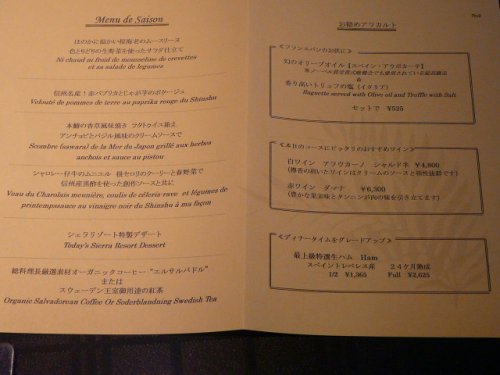 Menu de Saison
ほのかに温かい桜海老のムースリーヌ
色とりどりの生野菜を使ったサラダ仕立て
Ni chaud ni froid de mousseline de crevettes
et sa salade de legumes
信州名産！赤パプリカとじゃが芋のポタージュ
Velouté de pommes de terre au paprika rouge du Shinshu
本鰆の香草風味焼き ラタトゥイユ添え
アンチョビとバジル風味のクリームソースで
Scombre (sawara) de la Mer du Japon grillé aux herbes
anchois et sauce au pistou
シャロレー仔牛のムニエル 根セロリのクーリーと春野菜で
信州産黒酢を使った創作ソースと共に
Veau du Charolais meunière, coulis de céleris-rave et légumes de
printempssauce au vinaigre noir du Shinshu à ma façon
シェラリゾート特製デザート
Today's Sierra Resort Dessert
総料理長厳選素材オーガニックコーヒー “エルサルバドル”
または
スウェーデン王室御用達の紅茶
Organic Salvadorean Coffee Or Soderblandning Swedish Tea
お勧めアラカルト
＜フランスパンのお供に＞
幻のオリーブオイル【スペイン・アウボカーサ】
&
香り高いトリュフの塩（イタリア）
Baguette served with Olive oil and Truffle with Salt
セットで ¥525
にピッタリのおすすめワイン＞
白ワイン アラワカーノ シャルドネ ¥4,800
（樽香の効いたワインはクリームのソースと相性抜群です）
赤ワイン ダハナ ¥6,300
（豊かな果実味とタンニンがお肉の味を引き立てます）
＜ディナータイムをグレードアップ＞
最上級特選生ハム Ham
スペイントレベレス産 24ケ月熟成
1/2 ¥1,365 Full ¥2,625